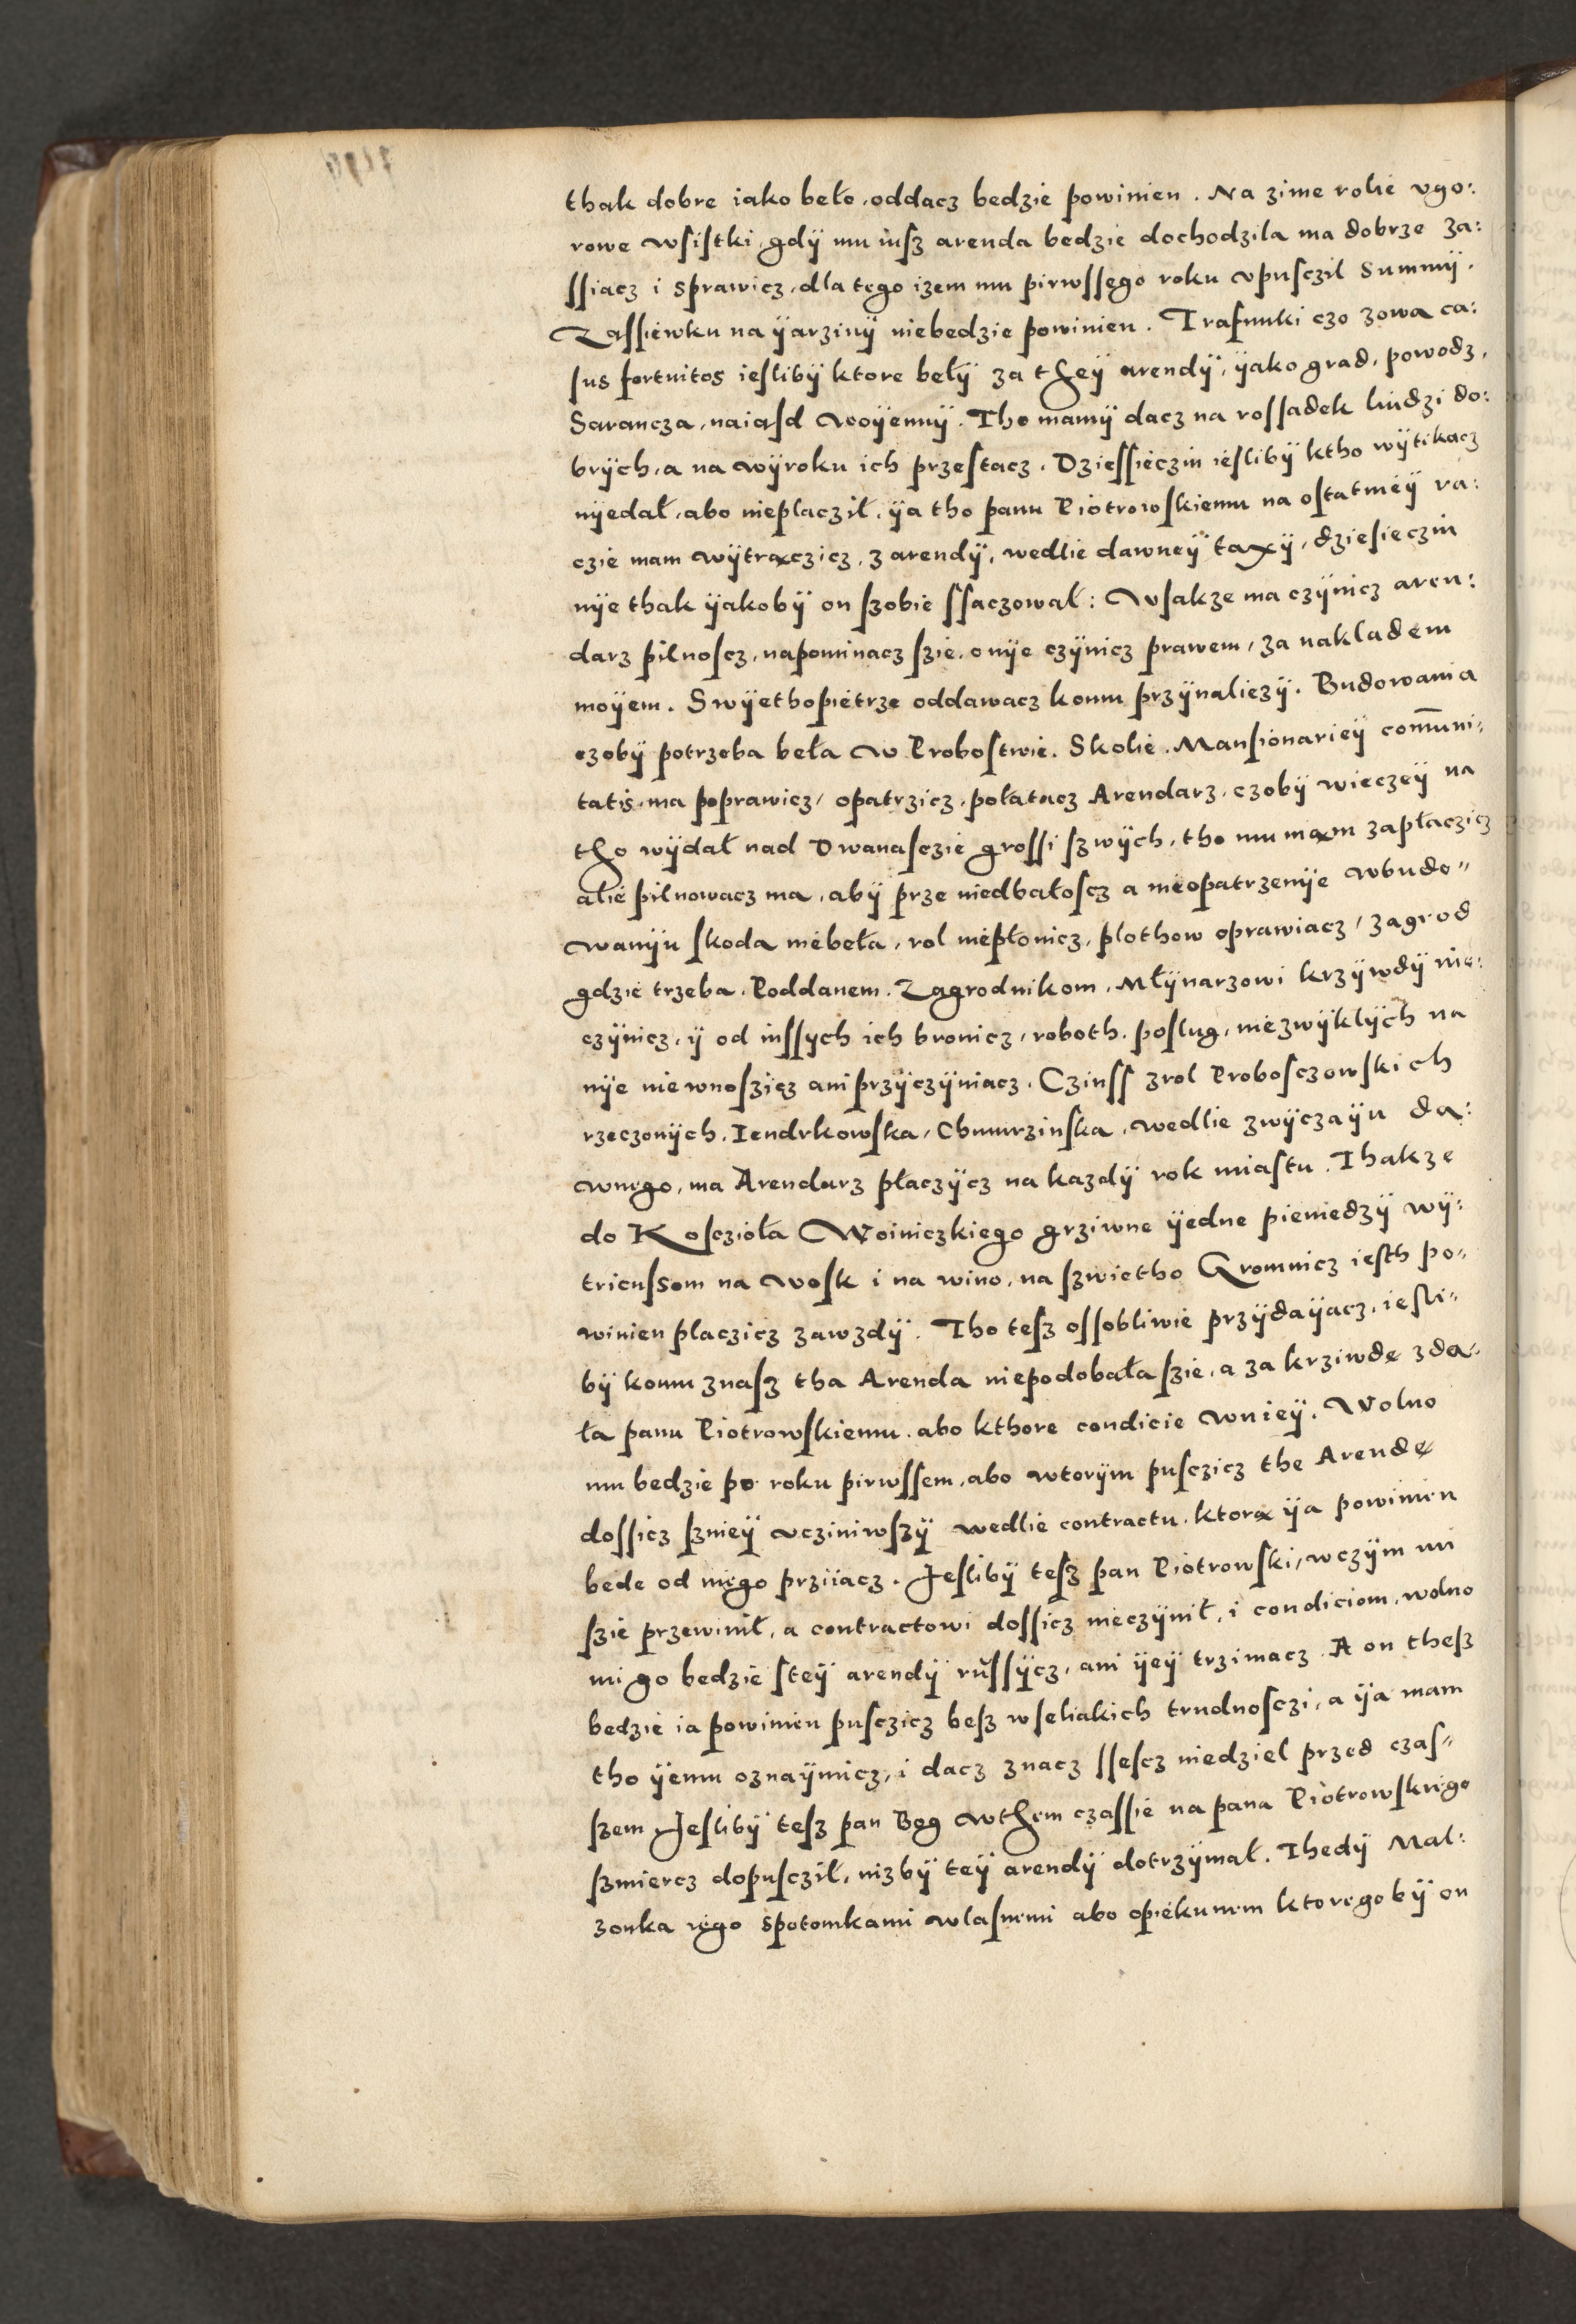 thak dobre iako beło, oddacz bedzie powinien. Na zime rolie vgo:
rowe wsistki, gdÿ mu iusz arenda bedzie dochodzila ma dobrze za:
ssiacz i sprawicz, dla tego izem mu pirwssego roku vpusczil Summÿ.
Zassiewku na ÿarzinÿ niebedzie powinien. Trafunki czo zowa ca:
sus fortuitos iesliby ktore bełÿ za theÿ arendÿ, ÿako grad, powodz,
Sarancza, naiasd woÿennÿ. Tho mamÿ dacz na rossadek liudzi do:
brÿch, a na wÿroku ich przestacz. Dziessięczin iesliby ktho wÿtikacz
nÿedał, abo nieplacził, ÿa tho panu Piotrowskiemu na ostatnieÿ ra:
czie mam wÿtraczicz, z arendÿ, wedlie dawneÿ taxÿ, dziesieczin
nÿe thak ÿakobÿ on szobie ssaczował: Wsakze ma czÿnicz aren:
darz pilnoscz, napominacz szie, o nÿe czÿnicz prawem, za nakladem
moÿem. Swÿethopietrze oddawacz komu przÿnaliezÿ. Budowania
czobÿ potrzeba beła w Probostwie. Skolie. Mansionarieÿ com̄uni:
tatis, ma poprawicz, opatrzicz, połatacz Arendarz, czobÿ wieczeÿ na
tho wÿdał nad Dwanasczie grossi szwÿch, tho mu mam zapłaczicz
alie pilnowacz ma, abÿ prze niedbałoscz a nieopatrzenÿe wbudo"
wanÿu skoda niebeła, rol niepłonicz, plothow oprawiacz, zagrod
gdzie trzeba. Poddanem. Zagrodnikom. Młÿnarzowi krzÿwdÿ nie:
czÿnicz, ÿ od inssych ich bronicz, roboth, poslug, niezwÿklÿch na
nÿe niewnoszicz ani przÿczÿniacz. Czinss zrol Probosczowskich
rzeczonÿch, Iendrkowska, Chmurzinska, wedlie zwÿczaÿu da:
wnego, ma Arendarz płaczÿcz na kazdÿ rok miastu. Thakze
do Kosczioła Woiniczkiego grziwne ÿedne pieniedzÿ wÿ:
tricussom na wosk i na wino, na szwietho Gromnicz iesth po"
winien placzicz zawzdÿ. Tho tesz ossobliwie przÿdaÿacz, iesli"
bÿ komu znasz tha Arenda niepodobała szie, a za krziwdę zda"
ła panu Piotrowskiemu, abo kthore condicie wnieÿ. Wolno
mu bedzie po roku pirwssem, abo wtorÿm pusczicz the Arendę
dossicz sznieÿ vcziniwszÿ wedlie contractu, ktora ÿa powinien
bede od niego prziiacz. Jeslibÿ tesz pan Piotrowski, wczÿm mi
szie przewinił, a contractowi dossicz nieczÿnił, i condiciom, wolno
mi go bedzie steÿ arendÿ russÿcz, ani ÿeÿ trzimacz. A on thesz
bedzie ia powinien pusczicz besz wseliakich trudnosczi, a ÿa mam
tho ÿemu oznaÿmicz, i dacz znacz ssescz niedziel przed czas"
szem Jeslibÿ tesz pan Bog wthem czassie na pana Piotrowskiego
szmiercz dopusczil, nizbÿ teÿ arendÿ dotrzÿmał. Thedÿ Mał:
zonka iego spotomkami wlasnemi abo opiekunem ktoregobÿ on